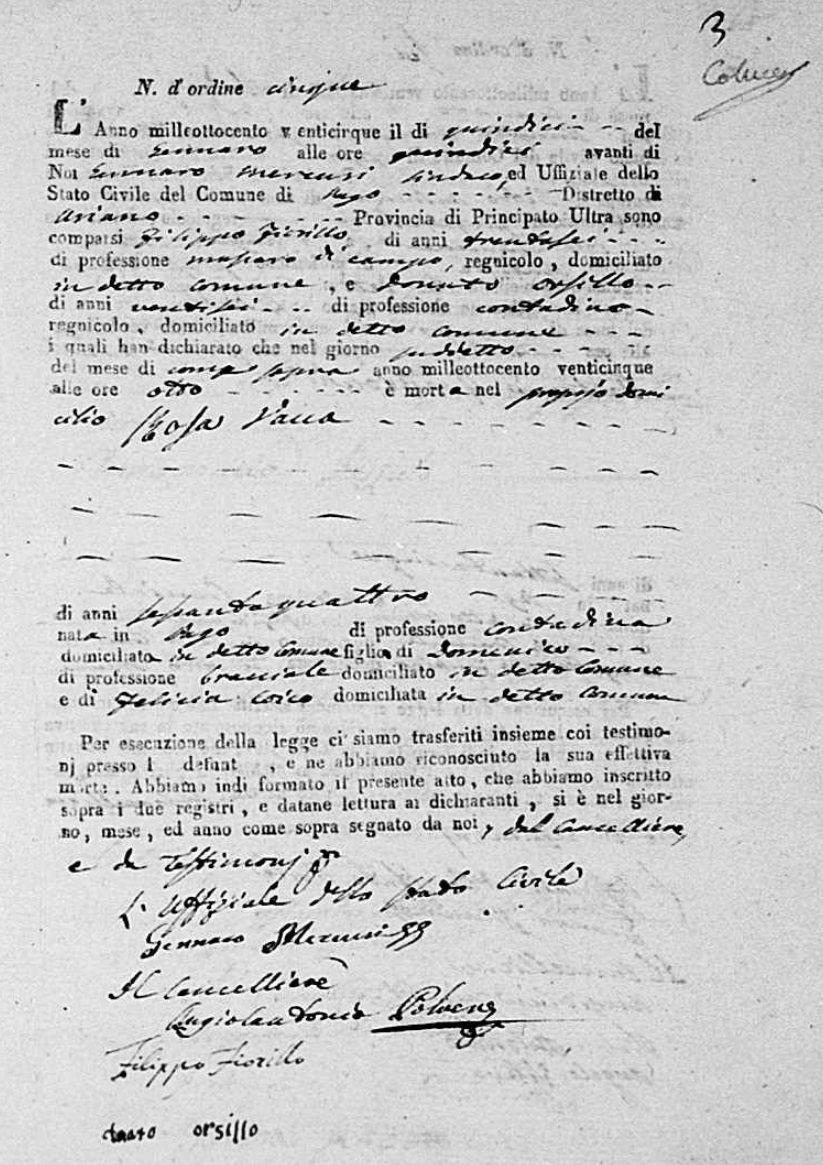 3
N. d'ordine cinque
L' Anno milleottocento venticinque il di quindici del
mese di Gennaro alle ore quindici avanti di
Noi Gennaro Mercuri Sindaco, ed Uffiziale dello
Stato Civile del Comune di Pago Distretto di
Ariano Provincia di Principato Ultra sono
comparsi Filippo Fiorillo di anni trentasei
di professione massaro di campo, regnicolo, domiciliato
in detto comune, e Donato Orsillo
di anni ventisei di professione contadino
regnicolo, domiciliato in detto comune
i quali han dichiarato che nel giorno suddetto
del mese di come sopra anno milleottocento venticinque
alle ore otto è morta nel proprio domi
cilio Rosa Vacca
di anni sessantaquattro
nata in Pago di professione contadina
domiciliata in detto Comune figlia di Domenico
di professione bracciale domiciliato in detto Comune
e di Felicia domiciliata in detto Comune
Per esecuzione della legge ci siamo trasferiti insieme coi testimo-
nj presso l defunt , e ne abbiamo riconosciuto la sua effettiva
morte. Abbiamo indi formato il presente atto, che abbiamo inscritto
sopra i due registri, e datane lettura ai dichiaranti, si è nel gior-
no, mese, ed anno come sopra segnato da noi, dal Cancelliere,
e da Testimonj
L'Uffiziale dello Stato Civile
Gennaro Mercuri
Il Cancelliere
Angiolantonio Polvere
Filippo Fiorillo
orsillo